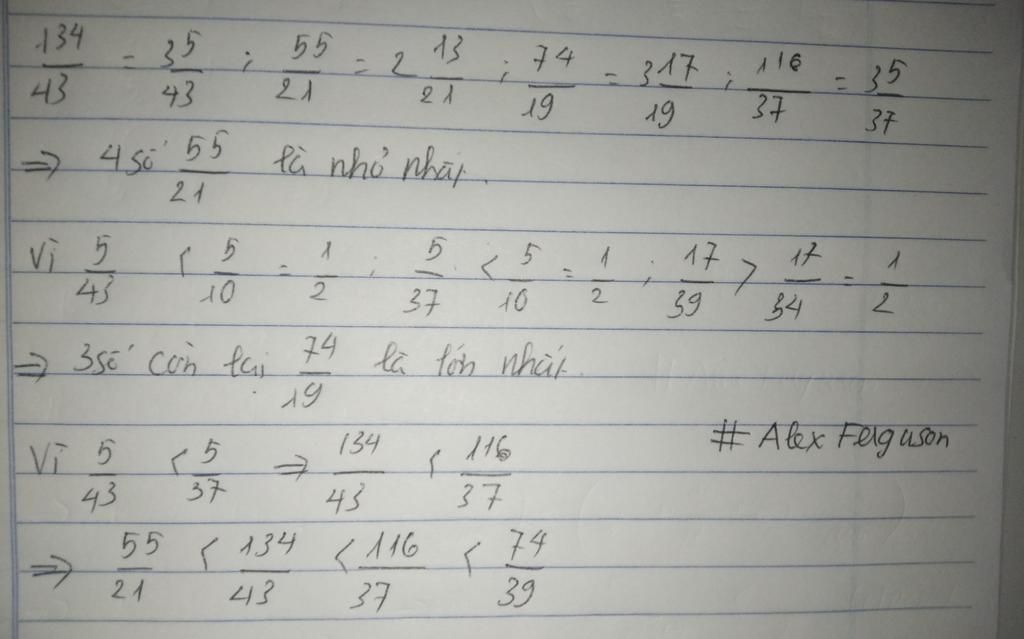 134/43 = 3 5/43 ; 55/21 = 2 13/21 ; 74/19 = 3 17/19 ; 116/37 = 3 5/37
=> 4 số 55/21 là nhỏ nhất.
Vì 5/43 < 5/10 = 1/2 ; 5/37 < 5/10 = 1/2 ; 17/39 > 17/34 = 1/2
=> 3 số còn lại 74/19 là lớn nhất.
# Alex Ferguson
Vì 5/43 < 5/37 => 134/43 < 116/37
=> 55/21 < 134/43 < 116/37 < 74/39